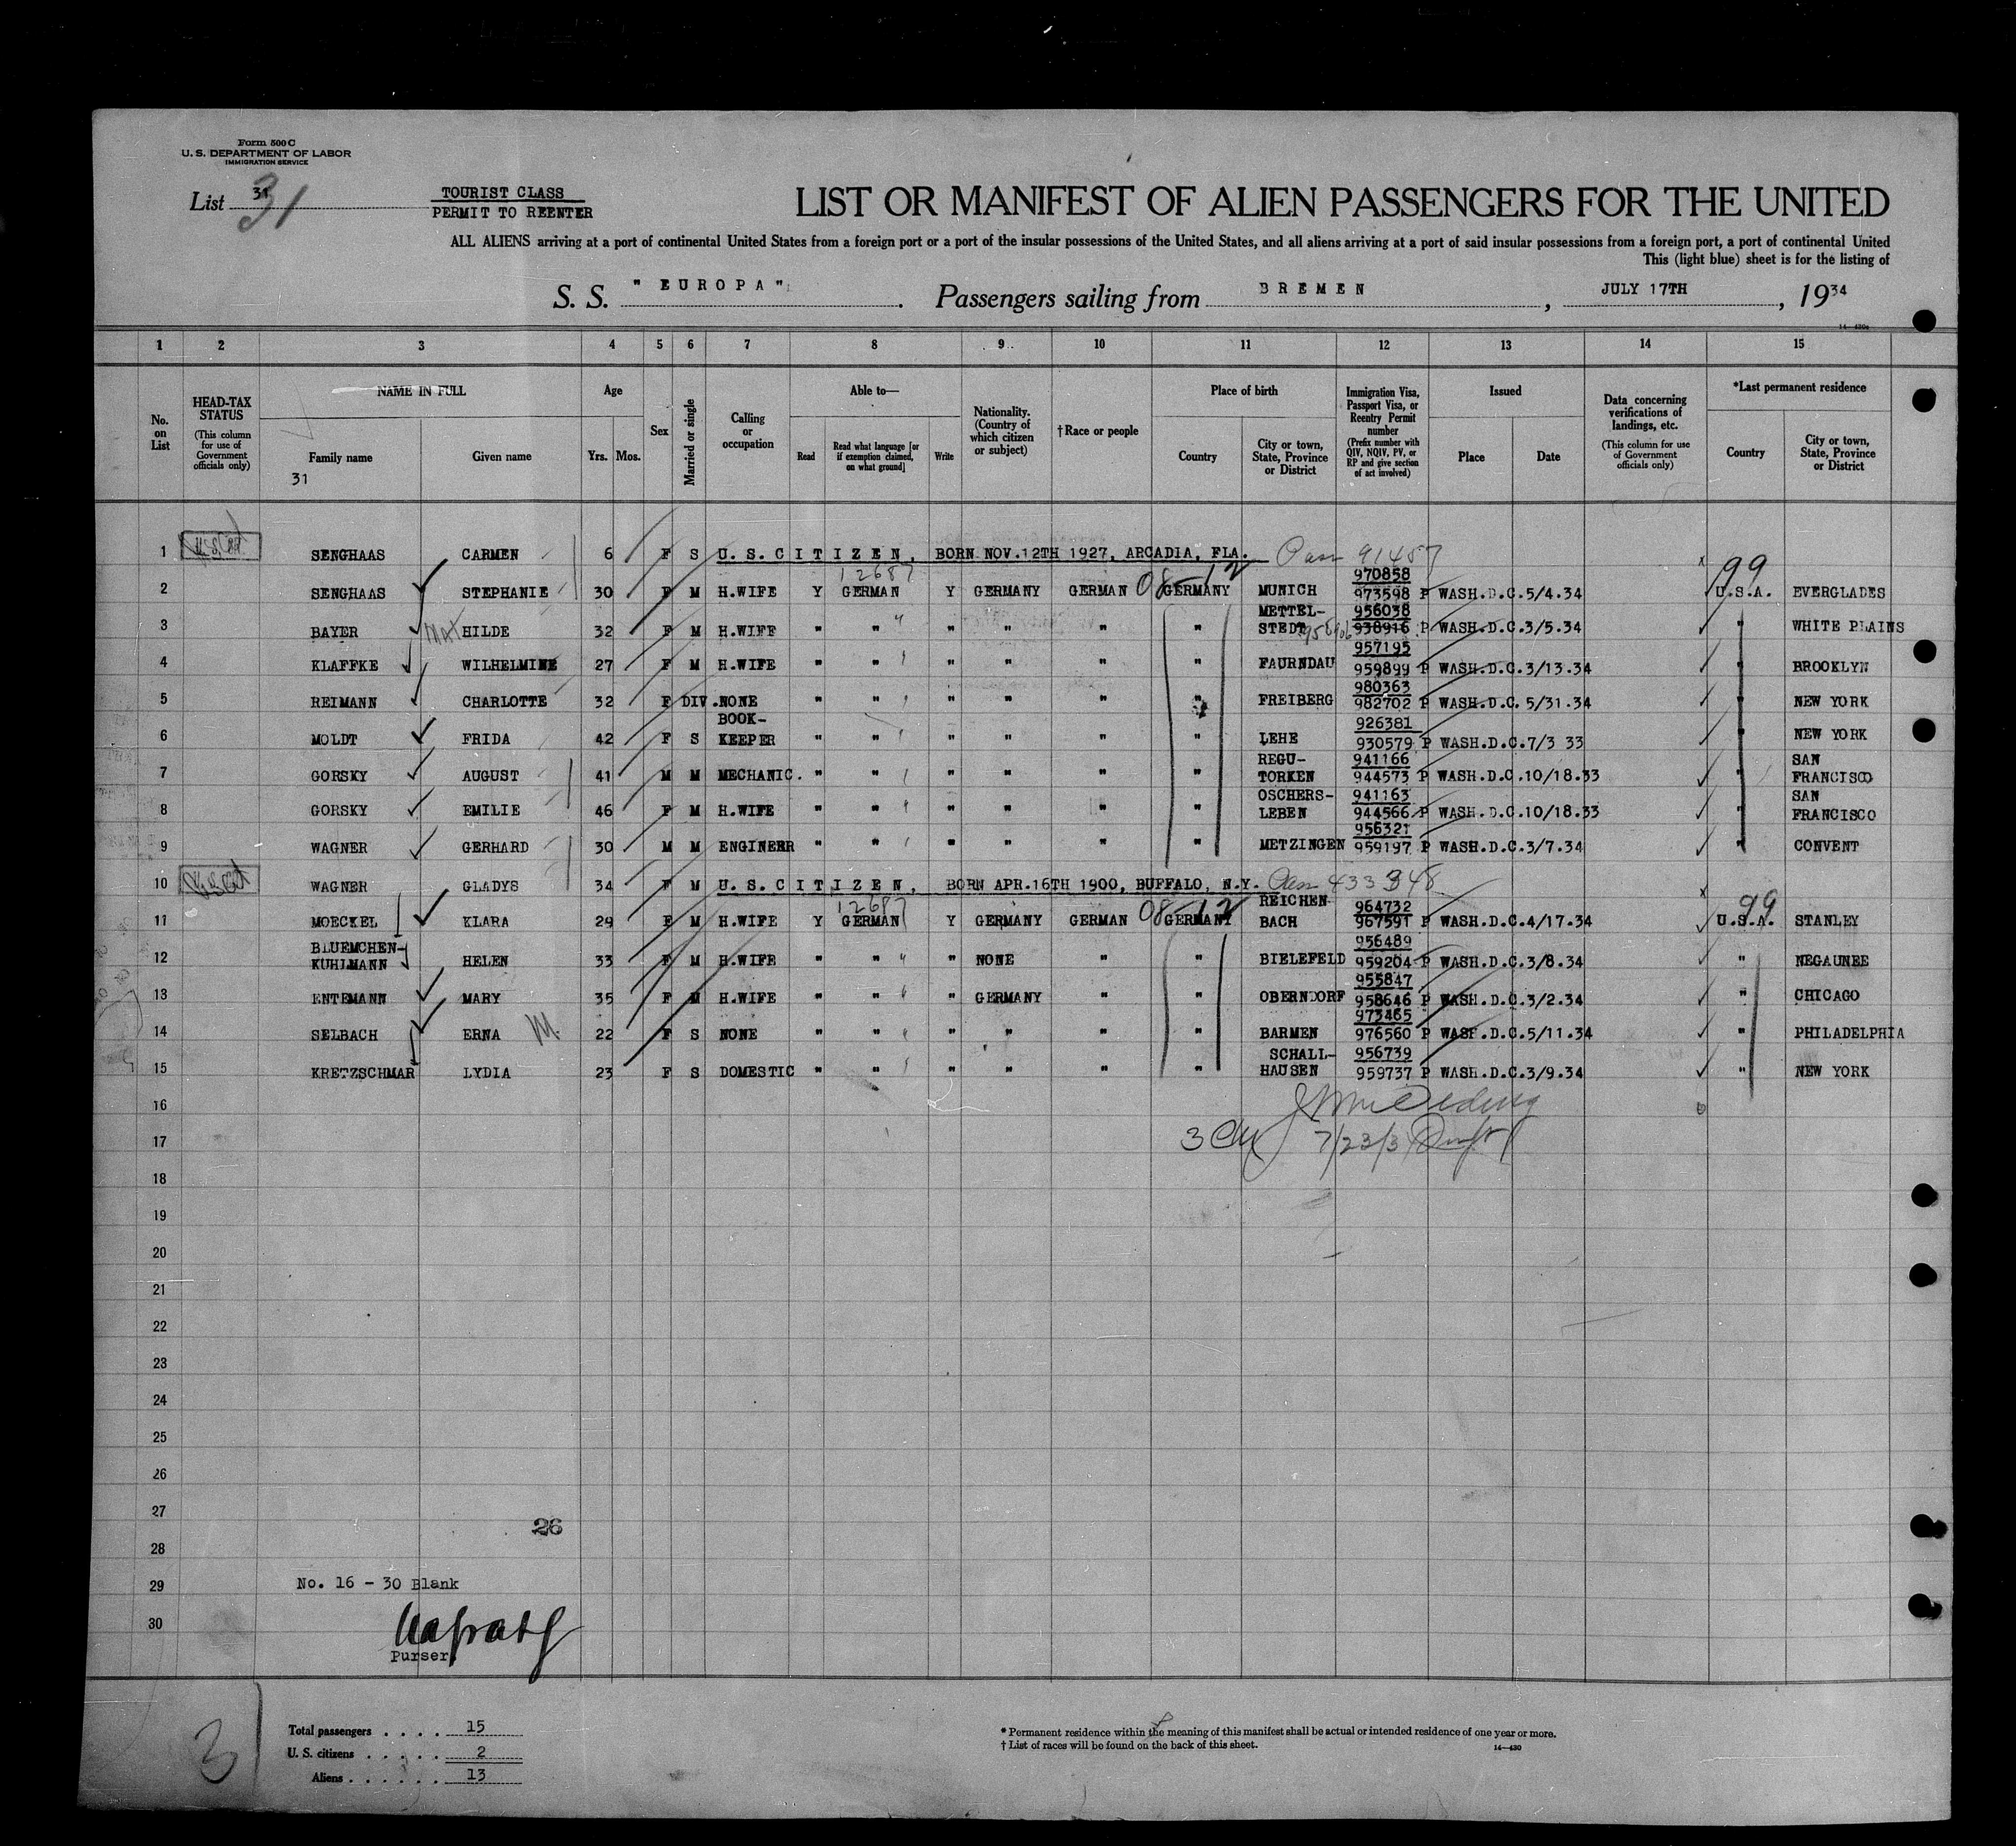 Form 500 C
U. S. DEPARTMENT OF LABOR
IMMIGRATION SERVICE
List 31 31
TOURIST CLASS
PERMIT TO REENTER
LIST OR MANIFEST OF ALIEN PASSENGERS FOR THE UNITED
ALL ALIENS arriving at a port of continental United States from a foreign port or a port of the insular possessions of the United States, and all aliens arriving at a port of said insular possessions from a foreign port, a port of continental United
This (light blue) sheet is for the listing of
S. S. " EUROPA " . Passengers sailing from BREMEN , JULY 17TH , 1934
1 2 3 4 5 6 7 8 9 10 11 12 13 14 15
No. on List
HEAD-TAX STATUS (This column for use of Government officials only)
NAME IN FULL Family name Given name
31
Age Yrs. Mos.
Sex
Married or single
Calling or occupation
Able to— Read Read what language [or if exemption claimed, on what ground] Write
Nationality. (Country of which citizen or subject)
† Race or people
Place of birth Country City or town, State, Province or District
Immigration Visa, Passport Visa, or Reentry Permit number (Prefix number with QIV, NQIV, PV, or RP and give section of act involved)
Issued Place Date
Data concerning verifications of landings, etc. (This column for use of Government officials only)
*Last permanent residence Country City or town, State, Province or District
1 SENGHAAS CARMEN 6 F S U. S. CITIZEN, BORN NOV. 12TH 1927, ARCADIA, FLA. 91487
2 SENGHAAS STEPHANIE 30 F M H.WIFE Y GERMAN 12687 Y GERMANY GERMAN 08-12 GERMANY MUNICH 970858 973598 P WASH.D.C. 5/4.34 99 U.S.A. EVERGLADES
3 BAYER HILDE 32 F M H.WIFE " " " " " " METTEL-STEDT 956038 938916 P WASH.D.C. 3/5.34 " WHITE PLAINS
4 KLAFFKE WILHELMINE 27 F M H.WIFE " " " " " " FAURNDAU 957195 959899 P WASH.D.C. 3/13.34 " BROOKLYN
5 REIMANN CHARLOTTE 32 F DIV. NONE " " " " " " FREIBERG 980363 982702 P WASH.D.C. 5/31.34 " NEW YORK
6 MOLDT FRIDA 42 F S BOOK-KEEPER " " " " " " LEHE 926381 930579 P WASH.D.C. 7/3 33 " NEW YORK
7 GORSKY AUGUST 41 M M MECHANIC. " " " " " " REGU-TORKEN 941166 944573 P WASH.D.C. 10/18.33 " SAN FRANCISCO
8 GORSKY EMILIE 46 F M H.WIFE " " " " " " OSCHERS-LEBEN 941163 944566 P WASH.D.C. 10/18.33 " SAN FRANCISCO
9 WAGNER GERHARD 30 M M ENGINEER " " " " " " METZINGEN 956321 959197 P WASH.D.C. 3/7.34 " CONVENT
10 WAGNER GLADYS 34 F M U. S. CITIZEN, BORN APR. 16TH 1900, BUFFALO, N.Y. 433348
11 MOECKEL KLARA 29 F M H.WIFE Y GERMAN 12687 Y GERMANY GERMAN 08-12 GERMANY REICHEN BACH 964732 967591 P WASH.D.C. 4/17.34 99 U.S.A. STANLEY
12 BLUEMCHEN-KUHLMANN HELEN 33 F M H.WIFE " " " NONE " " BIELEFELD 956489 959204 P WASH.D.C. 3/8.34 " NEGAUNEE
13 ENTEMANN MARY 35 F M H.WIFE " " " GERMANY " " OBERNDORF 955847 958646 P WASH.D.C. 3/2.34 " CHICAGO
14 SELBACH ERNA M. 22 F S NONE " " " " " " BARMEN 973465 976560 P WASH.D.C. 5/11.34 " PHILADELPHIA
15 KRETZSCHMAR LYDIA 23 F S DOMESTIC " " " " " " SCHALL-HAUSEN 956739 959737 P WASH.D.C. 3/9.34 " NEW YORK
16
17 7/23/34
18
19
20
21
22
23
24
25
26
27
26
28
29 No. 16 - 30 Blank
30
Purser
3
Total passengers . . . . 15
U. S. citizens . . . . . 2
Aliens . . . . . . 13
* Permanent residence within the meaning of this manifest shall be actual or intended residence of one year or more.
† List of races will be found on the back of this sheet.
14—430